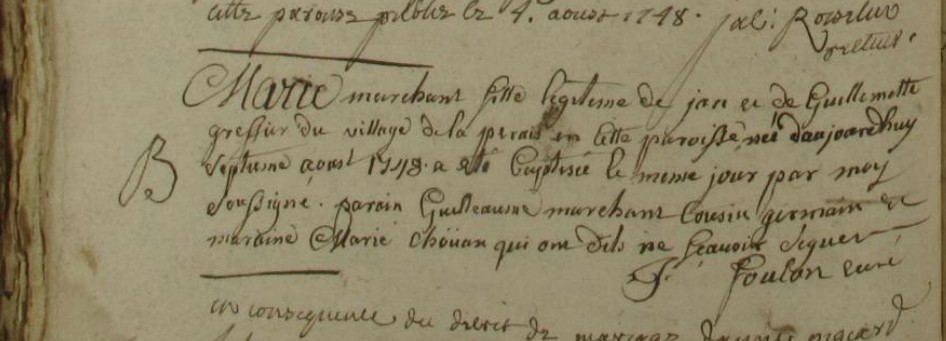 cette paroisse pellouer le 4. aoust 1748. Jal: Rouselur
recteur.
Marie marchant fille legitime de jan et de Guillemette
gressier du village de la perais en cette paroisse née d'aujourd'huy
septieme aoust 1748. a été baptisée le meme jour par moy
soussigné. parain Guilleaume marchant cousin germain et
maraine Marie choüan qui ont dits ne sçavoir signer
B
J. foulon curé
en consequence du decret de mariage